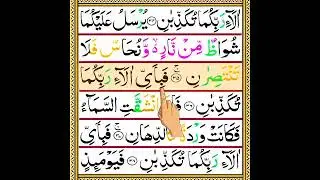 اٰلَآءِ رَبِّكُمَا تُكَذِّبٰنِ ﴿۳۴﴾ يُرْسَلُ عَلَيْكُمَا
شُوَاظٌ مِّنْ نَّارٍ ۙ وَّ نُحَاسٌ فَلَا
تَنْتَصِرٰنِ ﴿۳۵﴾ فَبِاَيِّ اٰلَآءِ رَبِّكُمَا
تُكَذِّبٰنِ ﴿۳۶﴾ فَاِذَا انْشَقَّتِ السَّمَآءُ
فَكَانَتْ وَرْدَةً كَالدِّهَانِ ﴿۳۷﴾ فَبِاَيِّ
اٰلَآءِ رَبِّكُمَا تُكَذِّبٰنِ ﴿۳۸﴾ فَيَوْمَئِذٍ